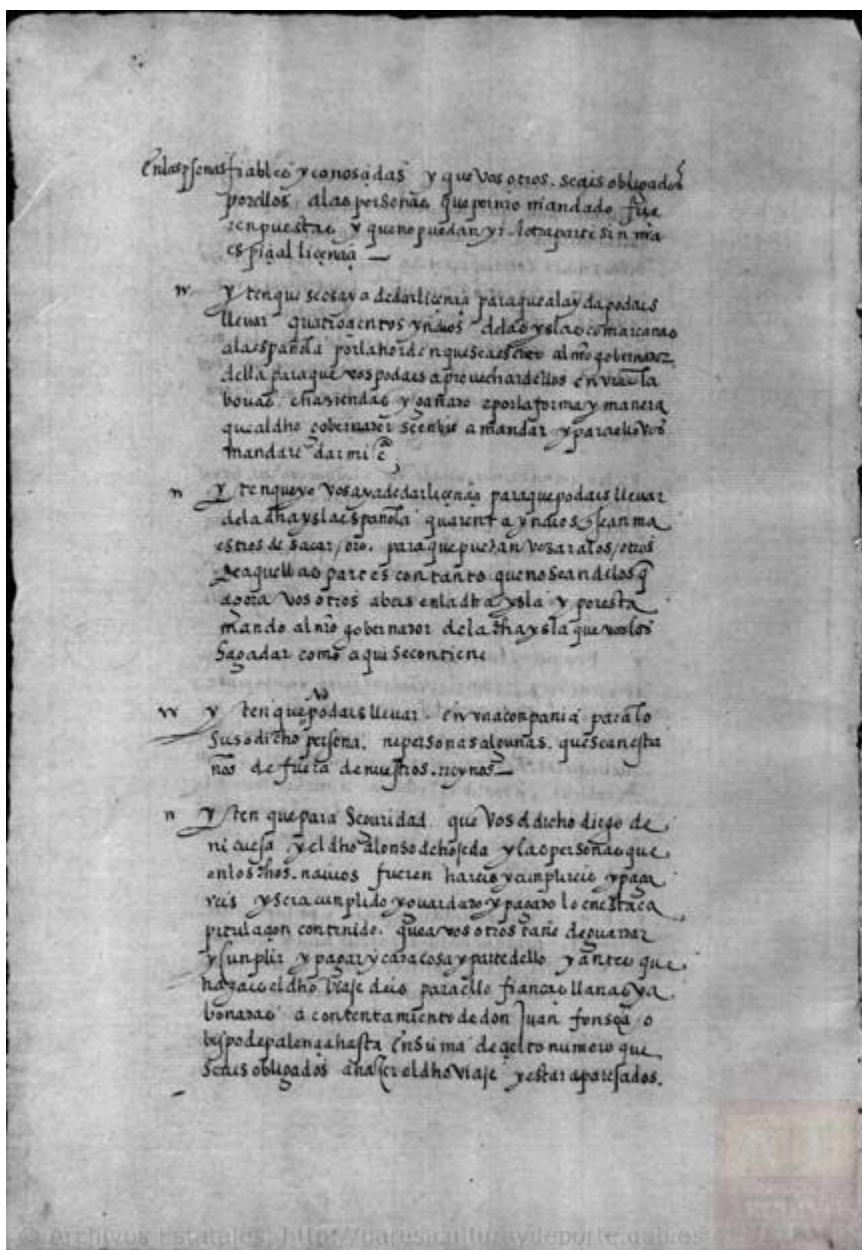 En las psonas fiables y conosçidas y que vos otros seais obligados
por ellos a las personas que por mio mandado fue
ren puestas y que no puedan yr a otra parte sin mia
espiçial liçençia
Y ten que se os aya de dar liçençia para que alayda podais
llevar quatroçientos yndios de las yslas comarcanas
a la española por la horden que se a al nro gobernador
della para que vos podais aprovechar dellos en vras la
bores e haziendas y ganado e por la forma y manera
que al dho gobernador se enbie a mandar y para ello vos
mandare dar mi çª
Y ten que yo vos aya de dar liçençia para que podais llevar
de la dha ysla española quarenta yndios sean ma
estros de sacar oro para que puedan vesar a los otros
de aquellas partes con tanto que no sean de los q
agora vos otros abeis en la dha ysla y por esta
mando al nro gobernador de la dha ysla que vos los
haga dar como aqui se contiene
no
Y ten que podais llevar en vna conpania para lo
suso dicho persona ni personas algunas que sean estra
nos de fuera de nuestros reynos
Y ten que para seguridad que vos el dicho diego de
nicuesa y el dho alonso de hojeda y las personas que
en los dhos navios fueren hareis y cunplireis y paga
reis y sera cunplido y guardado y pagado lo en esta ca
pitulaçion contenido que a vos otros tane de guardar
y cunplir y pagar y cada cosa y parte dello y antes que
hagais el dho viaje deis para ello fianças llanas y a
bonadas a contentamiento de don Juan fonseca o
bispo de palençia hasta en suma de çierto numero que
seais obligados a hacer el dho viaje y estar aparejados
© Archivos Estatales, http://pares.culturaydeporte.gob.es